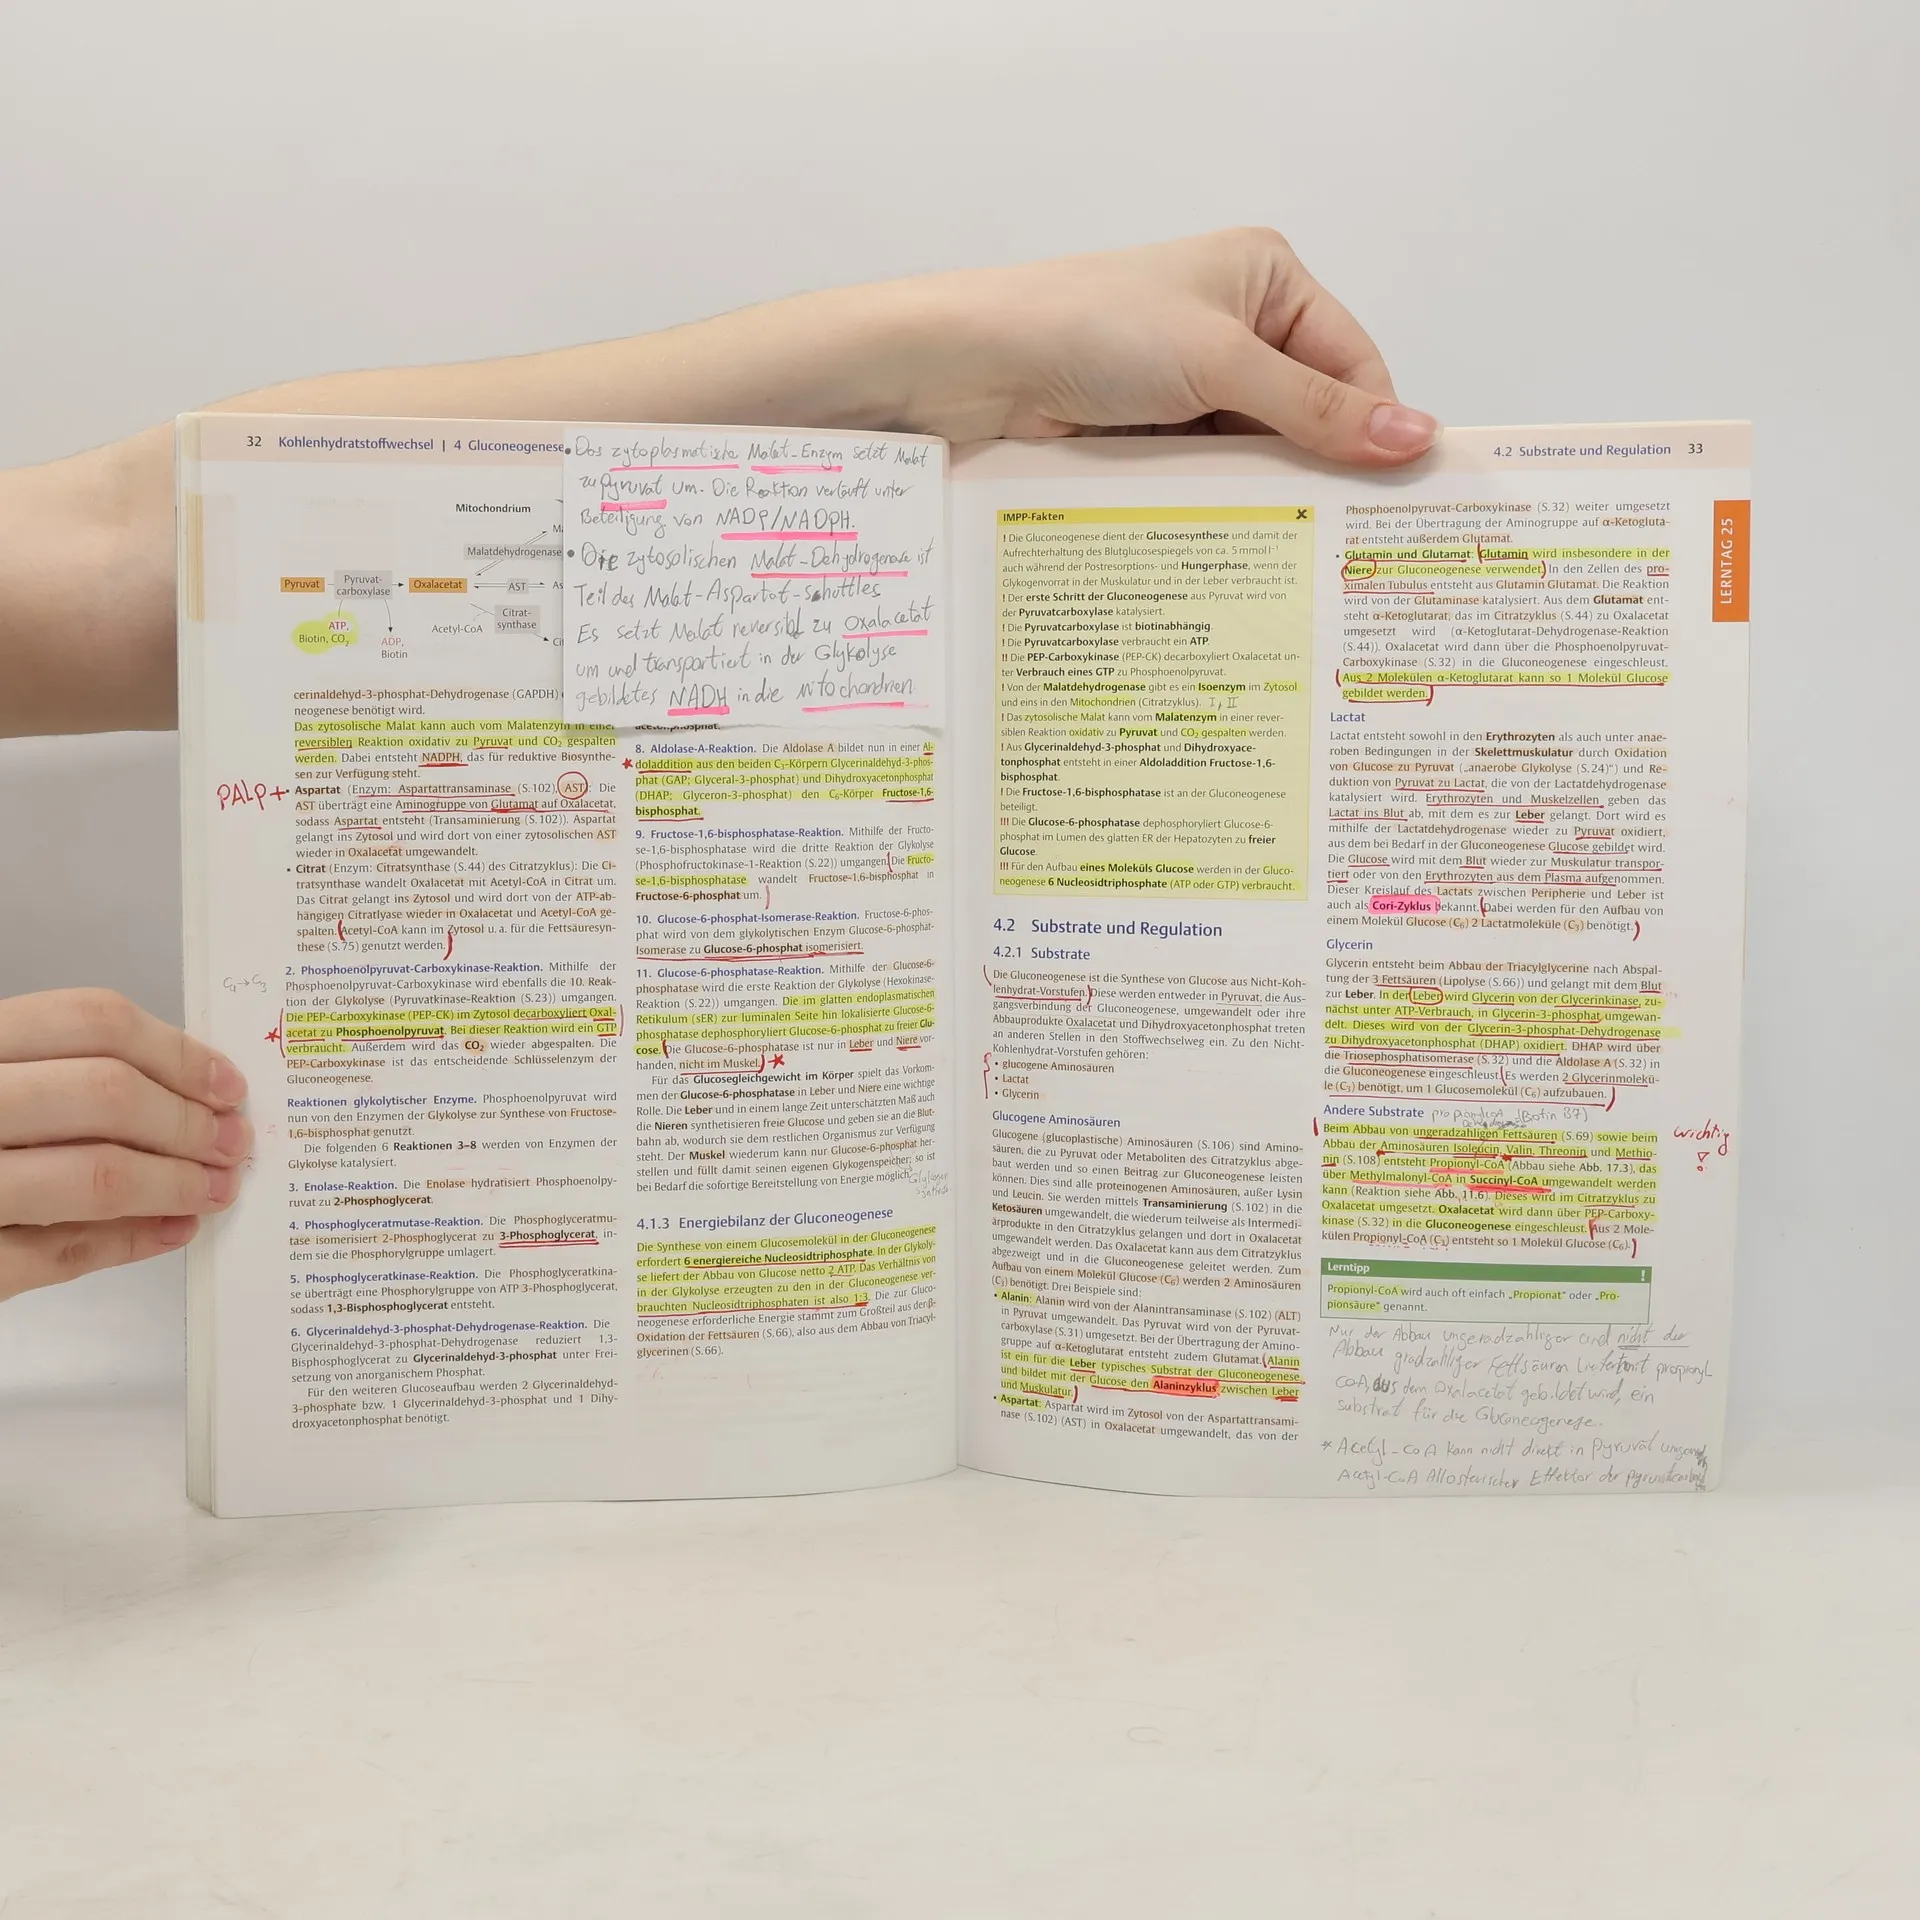 32 Kohlenhydratstoffwechsel | 4 Gluconeogenese
Mitochondrium
Malatdehydrogenase
Pyruvat
Pyruvat-
carboxylase
Oxalacetat
AST
Citrat-
synthase
Acetyl-CoA
ATP,
Biotin, CO₂
ADP,
Biotin
• Das zytoplasmatische Malat-Enzym setzt Malat
zu Pyruvat um. Die Reaktion verläuft unter
Beteiligung von NADP/NADPH.
• Die zytosolischen Malat-Dehydrogenase ist
Teil des Malat-Aspartat-schuttles
Es setzt Malat reversibl zu Oxalacetat
um und transportiert in der Glykolyse
gebildetes NADH in die Mitochondrien.
cerinaldehyd-3-phosphat-Dehydrogenase (GAPDH)
neogenese benötigt wird.
Das zytosolische Malat kann auch vom Malatenzym in einer
reversiblen Reaktion oxidativ zu Pyruvat und CO₂ gespalten
werden. Dabei entsteht NADPH, das für reduktive Biosynthe-
sen zur Verfügung steht.
PALP+
• Aspartat (Enzym: Aspartattransaminase (S.102), AST): Die
AST überträgt eine Aminogruppe von Glutamat auf Oxalacetat,
sodass Aspartat entsteht (Transaminierung (S.102)). Aspartat
gelangt ins Zytosol und wird dort von einer zytosolischen AST
wieder in Oxalacetat umgewandelt.
• Citrat (Enzym: Citratsynthase (S.44) des Citratzyklus): Die Ci-
tratsynthase wandelt Oxalacetat mit Acetyl-CoA in Citrat um.
Das Citrat gelangt ins Zytosol und wird dort von der ATP-ab-
hängigen Citratlyase wieder in Oxalacetat und Acetyl-CoA ge-
spalten. (Acetyl-CoA kann im Zytosol u. a. für die Fettsäuresyn-
these (S.75) genutzt werden.)
C₄→C₃
2. Phosphoenolpyruvat-Carboxykinase-Reaktion. Mithilfe der
Phosphoenolpyruvat-Carboxykinase wird ebenfalls die 10. Reak-
tion der Glykolyse (Pyruvatkinase-Reaktion (S.23)) umgangen.
Die PEP-Carboxykinase (PEP-CK) im Zytosol decarboxyliert Oxal-
acetat zu Phosphoenolpyruvat. Bei dieser Reaktion wird ein GTP
verbraucht. Außerdem wird das CO₂ wieder abgespalten. Die
PEP-Carboxykinase ist das entscheidende Schlüsselenzym der
Gluconeogenese.
Reaktionen glykolytischer Enzyme. Phosphoenolpyruvat wird
nun von den Enzymen der Glykolyse zur Synthese von Fructose-
1,6-bisphosphat genutzt.
Die folgenden 6 Reaktionen 3–8 werden von Enzymen der
Glykolyse katalysiert.
3. Enolase-Reaktion. Die Enolase hydratisiert Phosphoenolpy-
ruvat zu 2-Phosphoglycerat.
4. Phosphoglyceratmutase-Reaktion. Die Phosphoglyceratmu-
tase isomerisiert 2-Phosphoglycerat zu 3-Phosphoglycerat, in-
dem sie die Phosphorylgruppe umlagert.
5. Phosphoglyceratkinase-Reaktion. Die Phosphoglyceratkina-
se überträgt eine Phosphorylgruppe von ATP 3-Phosphoglycerat,
sodass 1,3-Bisphosphoglycerat entsteht.
6. Glycerinaldehyd-3-phosphat-Dehydrogenase-Reaktion. Die
Glycerinaldehyd-3-phosphat-Dehydrogenase reduziert 1,3-
Bisphosphoglycerat zu Glycerinaldehyd-3-phosphat unter Frei-
setzung von anorganischem Phosphat.
Für den weiteren Glucoseaufbau werden 2 Glycerinaldehyd-
3-phosphate bzw. 1 Glycerinaldehyd-3-phosphat und 1 Dihy-
droxyacetonphosphat benötigt.
acetonphosphat.
8. Aldolase-A-Reaktion. Die Aldolase A bildet nun in einer Al-
doladdition aus den beiden C₃-Körpern Glycerinaldehyd-3-phos-
phat (GAP; Glyceral-3-phosphat) und Dihydroxyacetonphosphat
(DHAP; Glyceron-3-phosphat) den C₆-Körper Fructose-1,6-
bisphosphat.
9. Fructose-1,6-bisphosphatase-Reaktion. Mithilfe der Fructo-
se-1,6-bisphosphatase wird die dritte Reaktion der Glykolyse
(Phosphofructokinase-1-Reaktion (S.22)) umgangen. (Die Fructo-
se-1,6-bisphosphatase wandelt Fructose-1,6-bisphosphat in
Fructose-6-phosphat um.)
10. Glucose-6-phosphat-Isomerase-Reaktion. Fructose-6-phos-
phat wird von dem glykolytischen Enzym Glucose-6-phosphat-
Isomerase zu Glucose-6-phosphat isomerisiert.
11. Glucose-6-phosphatase-Reaktion. Mithilfe der Glucose-6-
phosphatase wird die erste Reaktion der Glykolyse (Hexokinase-
Reaktion (S.22)) umgangen. Die im glatten endoplasmatischen
Retikulum (sER) zur luminalen Seite hin lokalisierte Glucose-6-
phosphatase dephosphoryliert Glucose-6-phosphat zu freier Glu-
cose. (Die Glucose-6-phosphatase ist nur in Leber und Niere vor-
handen, nicht im Muskel.)
Für das Glucosegleichgewicht im Körper spielt das Vorkom-
men der Glucose-6-phosphatase in Leber und Niere eine wichtige
Rolle. Die Leber und in einem lange Zeit unterschätzten Maß auch
die Nieren synthetisieren freie Glucose und geben sie an die Blut-
bahn ab, wodurch sie dem restlichen Organismus zur Verfügung
steht. Der Muskel wiederum kann nur Glucose-6-phosphat her-
stellen und füllt damit seinen eigenen Glykogenspeicher; so ist
bei Bedarf die sofortige Bereitstellung von Energie möglich.
4.1.3 Energiebilanz der Gluconeogenese
Die Synthese von einem Glucosemolekül in der Gluconeogenese
erfordert 6 energiereiche Nucleosidtriphosphate. In der Glykoly-
se liefert der Abbau von Glucose netto 2 ATP. Das Verhältnis von
in der Glykolyse erzeugten zu den in der Gluconeogenese ver-
brauchten Nucleosidtriphosphaten ist also 1:3. Die zur Gluco-
neogenese erforderliche Energie stammt zum Großteil aus der β-
Oxidation der Fettsäuren (S.66), also aus dem Abbau von Triacyl-
glycerinen (S.66).
4.2 Substrate und Regulation 33
LERNTAG 25
IMPP-Fakten
! Die Gluconeogenese dient der Glucosesynthese und damit der
Aufrechterhaltung des Blutglucosespiegels von ca. 5 mmol l⁻¹
auch während der Postresorptions- und Hungerphase, wenn der
Glykogenvorrat in der Muskulatur und in der Leber verbraucht ist.
! Der erste Schritt der Gluconeogenese aus Pyruvat wird von
der Pyruvatcarboxylase katalysiert.
! Die Pyruvatcarboxylase ist biotinabhängig.
! Die Pyruvatcarboxylase verbraucht ein ATP.
!! Die PEP-Carboxykinase (PEP-CK) decarboxyliert Oxalacetat un-
ter Verbrauch eines GTP zu Phosphoenolpyruvat.
! Von der Malatdehydrogenase gibt es ein Isoenzym im Zytosol
und eins in den Mitochondrien (Citratzyklus). I, II
! Das zytosolische Malat kann vom Malatenzym in einer rever-
siblen Reaktion oxidativ zu Pyruvat und CO₂ gespalten werden.
! Aus Glycerinaldehyd-3-phosphat und Dihydroxyace-
tonphosphat entsteht in einer Aldoladdition Fructose-1,6-
bisphosphat.
! Die Fructose-1,6-bisphosphatase ist an der Gluconeogenese
beteiligt.
!!! Die Glucose-6-phosphatase dephosphoryliert Glucose-6-
phosphat im Lumen des glatten ER der Hepatozyten zu freier
Glucose.
!!! Für den Aufbau eines Moleküls Glucose werden in der Gluco-
neogenese 6 Nucleosidtriphosphate (ATP oder GTP) verbraucht.
4.2 Substrate und Regulation
4.2.1 Substrate
(Die Gluconeogenese ist die Synthese von Glucose aus Nicht-Koh-
lenhydrat-Vorstufen.) Diese werden entweder in Pyruvat, die Aus-
gangsverbindung der Gluconeogenese, umgewandelt oder ihre
Abbauprodukte Oxalacetat und Dihydroxyacetonphosphat treten
an anderen Stellen in den Stoffwechselweg ein. Zu den Nicht-
Kohlenhydrat-Vorstufen gehören:
• glucogene Aminosäuren
• Lactat
• Glycerin
Glucogene Aminosäuren
Glucogene (glucoplastische) Aminosäuren (S.106) sind Amino-
säuren, die zu Pyruvat oder Metaboliten des Citratzyklus abge-
baut werden und so einen Beitrag zur Gluconeogenese leisten
können. Dies sind alle proteinogenen Aminosäuren, außer Lysin
und Leucin. Sie werden mittels Transaminierung (S.102) in die
Ketosäuren umgewandelt, die wiederum teilweise als Intermedi-
ärprodukte in den Citratzyklus gelangen und dort in Oxalacetat
umgewandelt werden. Das Oxalacetat kann aus dem Citratzyklus
abgezweigt und in die Gluconeogenese geleitet werden. Zum
Aufbau von einem Molekül Glucose (C₆) werden 2 Aminosäuren
(C₃) benötigt. Drei Beispiele sind:
• Alanin: Alanin wird von der Alanintransaminase (S.102) (ALT)
in Pyruvat umgewandelt. Das Pyruvat wird von der Pyruvat-
carboxylase (S.31) umgesetzt. Bei der Übertragung der Amino-
gruppe auf α-Ketoglutarat entsteht zudem Glutamat. (Alanin
ist ein für die Leber typisches Substrat der Gluconeogenese
und bildet mit der Glucose den Alaninzyklus zwischen Leber
und Muskulatur.)
• Aspartat: Aspartat wird im Zytosol von der Aspartattransami-
nase (S.102) (AST) in Oxalacetat umgewandelt, das von der
Phosphoenolpyruvat-Carboxykinase (S.32) weiter umgesetzt
wird. Bei der Übertragung der Aminogruppe auf α-Ketogluta-
rat entsteht außerdem Glutamat.
• Glutamin und Glutamat: (Glutamin wird insbesondere in der
Niere zur Gluconeogenese verwendet.) In den Zellen des pro-
ximalen Tubulus entsteht aus Glutamin Glutamat. Die Reaktion
wird von der Glutaminase katalysiert. Aus dem Glutamat ent-
steht α-Ketoglutarat, das im Citratzyklus (S.44) zu Oxalacetat
umgesetzt wird (α-Ketoglutarat-Dehydrogenase-Reaktion
(S.44)). Oxalacetat wird dann über die Phosphoenolpyruvat-
Carboxykinase (S.32) in die Gluconeogenese eingeschleust.
(Aus 2 Molekülen α-Ketoglutarat kann so 1 Molekül Glucose
gebildet werden.)
Lactat
Lactat entsteht sowohl in den Erythrozyten als auch unter anae-
roben Bedingungen in der Skelettmuskulatur durch Oxidation
von Glucose zu Pyruvat („anaerobe Glykolyse (S.24)“) und Re-
duktion von Pyruvat zu Lactat, die von der Lactatdehydrogenase
katalysiert wird. Erythrozyten und Muskelzellen geben das
Lactat ins Blut ab, mit dem es zur Leber gelangt. Dort wird es
mithilfe der Lactatdehydrogenase wieder zu Pyruvat oxidiert,
aus dem bei Bedarf in der Gluconeogenese Glucose gebildet wird.
Die Glucose wird mit dem Blut wieder zur Muskulatur transpor-
tiert oder von den Erythrozyten aus dem Plasma aufgenommen.
Dieser Kreislauf des Lactats zwischen Peripherie und Leber ist
auch als Cori-Zyklus bekannt. (Dabei werden für den Aufbau von
einem Molekül Glucose (C₆) 2 Lactatmoleküle (C₃) benötigt.)
Glycerin
Glycerin entsteht beim Abbau der Triacylglycerine nach Abspal-
tung der 3 Fettsäuren (Lipolyse (S.66)) und gelangt mit dem Blut
zur Leber. In der Leber wird Glycerin von der Glycerinkinase, zu-
nächst unter ATP-Verbrauch, in Glycerin-3-phosphat umgewan-
delt. Dieses wird von der Glycerin-3-phosphat-Dehydrogenase
zu Dihydroxyacetonphosphat (DHAP) oxidiert. DHAP wird über
die Triosephosphatisomerase (S.32) und die Aldolase A (S.32) in
die Gluconeogenese eingeschleust. (Es werden 2 Glycerinmolekü-
le (C₃) benötigt, um 1 Glucosemolekül (C₆) aufzubauen.)
Andere Substrate (Biotin B7)
Beim Abbau von ungeradzahligen Fettsäuren (S.69) sowie beim
Abbau der Aminosäuren Isoleucin, Valin, Threonin und Methio-
nin (S.108) entsteht Propionyl-CoA (Abbau siehe Abb. 17.3), das
über Methylmalonyl-CoA in Succinyl-CoA umgewandelt werden
kann (Reaktion siehe Abb. 11.6). Dieses wird im Citratzyklus zu
Oxalacetat umgesetzt. Oxalacetat wird dann über PEP-Carboxy-
kinase (S.32) in die Gluconeogenese eingeschleust. (Aus 2 Mole-
külen Propionyl-CoA (C₃) entsteht so 1 Molekül Glucose (C₆).)
wichtig
!
Lerntipp !
Propionyl-CoA wird auch oft einfach „Propionat“ oder „Pro-
pionsäure“ genannt.
Nur der Abbau ungeradzahliger und nicht der
Abbau gradzahliger Fettsäuren liefert mit propionyl
CoA, aus dem Oxalacetat gebildet wird, ein
substrat für die Gluconeogenese.
* Acetyl-CoA kann nicht direkt in Pyruvat
Acetyl-CoA Allosterischer Effektor der